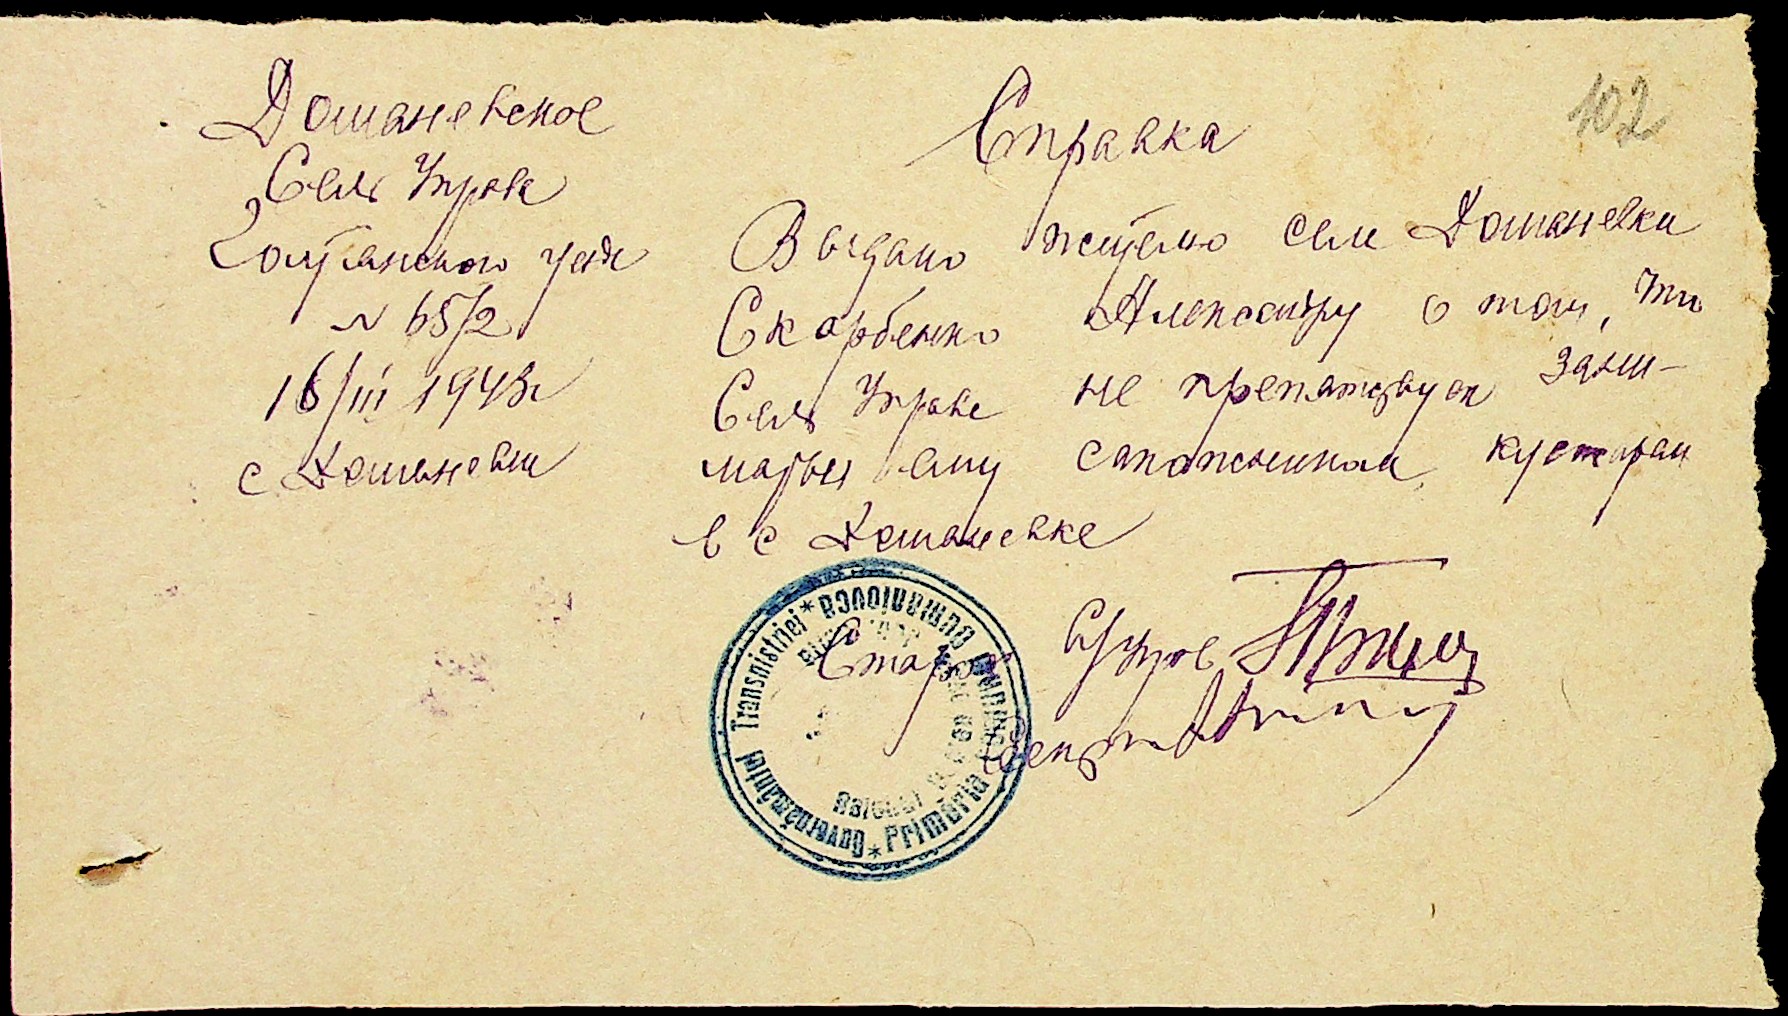 102
Доманевское
Сель Управе
Голтянского уезда
N 65/2
16/III 1943г
с Доманевки
Справка
Выдано жителю села Доманевки
Скорбенко Александру о том, что
Сель Управе не препятствует зани-
маться ему сапожником кустарем
в с Доманевке
Староста
Секрет
Guvernământul Transnistriei * Primăria Comunei Dumaniovca *
Raionul